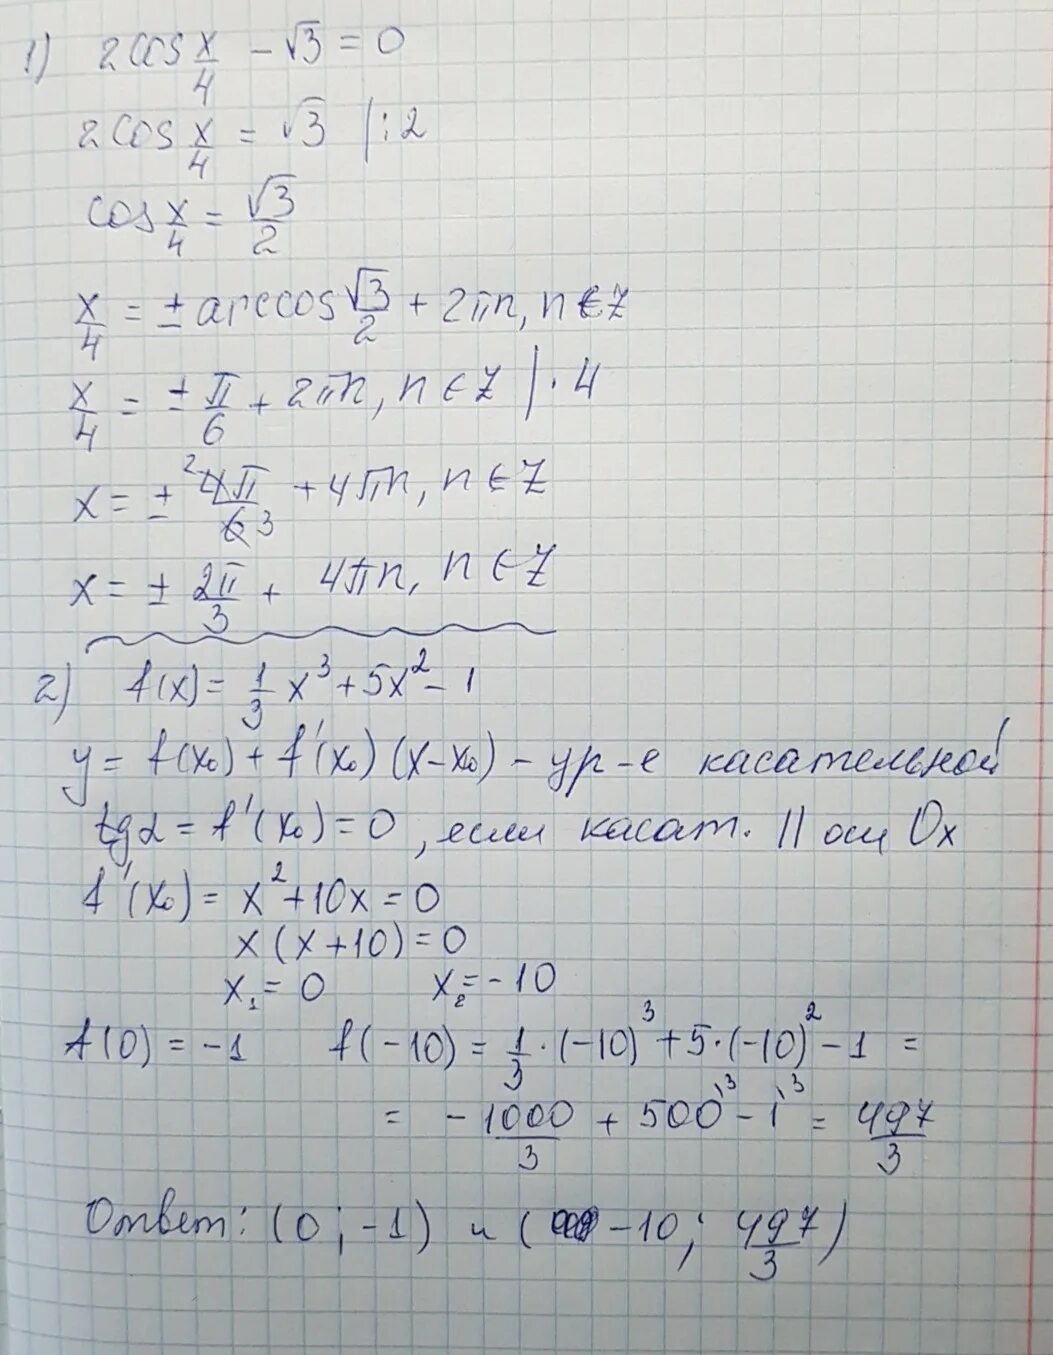 1) 2cos x/4 - √3 = 0
2cos x/4 = √3 | : 2
cos x/4 = √3/2
x/4 = ± arccos √3/2 + 2πn, n ∈ Z
x/4 = ± π/6 + 2πn, n ∈ Z | · 4
x = ± 4π/6 + 4πn, n ∈ Z
x = ± 2π/3 + 4πn, n ∈ Z
2) f(x) = 1/3 x³ + 5x² - 1
y = f(x₀) + f'(x₀)(x - x₀) - ур-е касательной
tgα = f'(x₀) = 0, если касат. || оси Ox
f'(x₀) = x² + 10x = 0
x(x + 10) = 0
x₁ = 0 x₂ = -10
f(0) = -1 f(-10) = 1/3 · (-10)³ + 5 · (-10)² - 1 =
= -1000/3 + 500\³ - 1\³ = 497/3
Ответ: (0; -1) и (-10; 497/3)